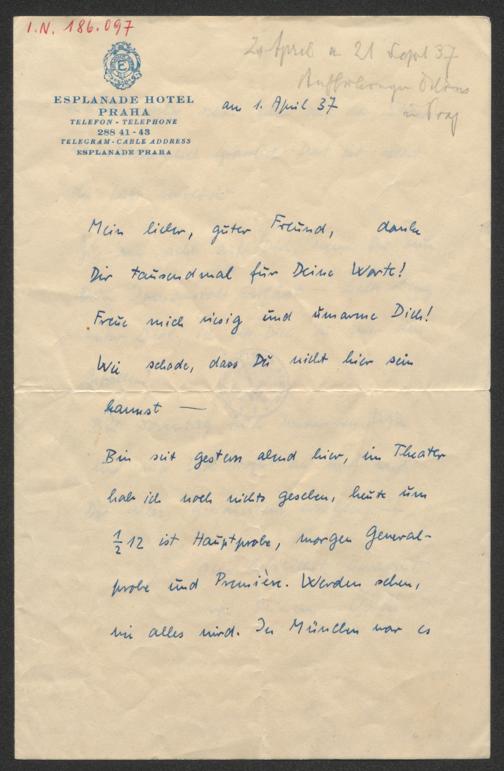 I.N. 186.097
2. April u 21 Sept 37
in Prag
ESPLANADE HOTEL
PRAHA
TELEFON - TELEPHONE
288 41 - 43
TELEGRAM - CABLE ADDRESS
ESPLANADE PRAHA
am 1. April 37
Mein lieber, guter Freund, danke
Dir tausendmal für Deine Worte!
Freue mich riesig und umarme Dich!
Wie schade, dass Du nicht hier sein
kannst —
Bin seit gestern abend hier, im Theater
hab ich noch nichts gesehen, heute um
½ 12 ist Hauptprobe, morgen General-
probe und Première. Werden sehen,
wie alles wird. In München war es